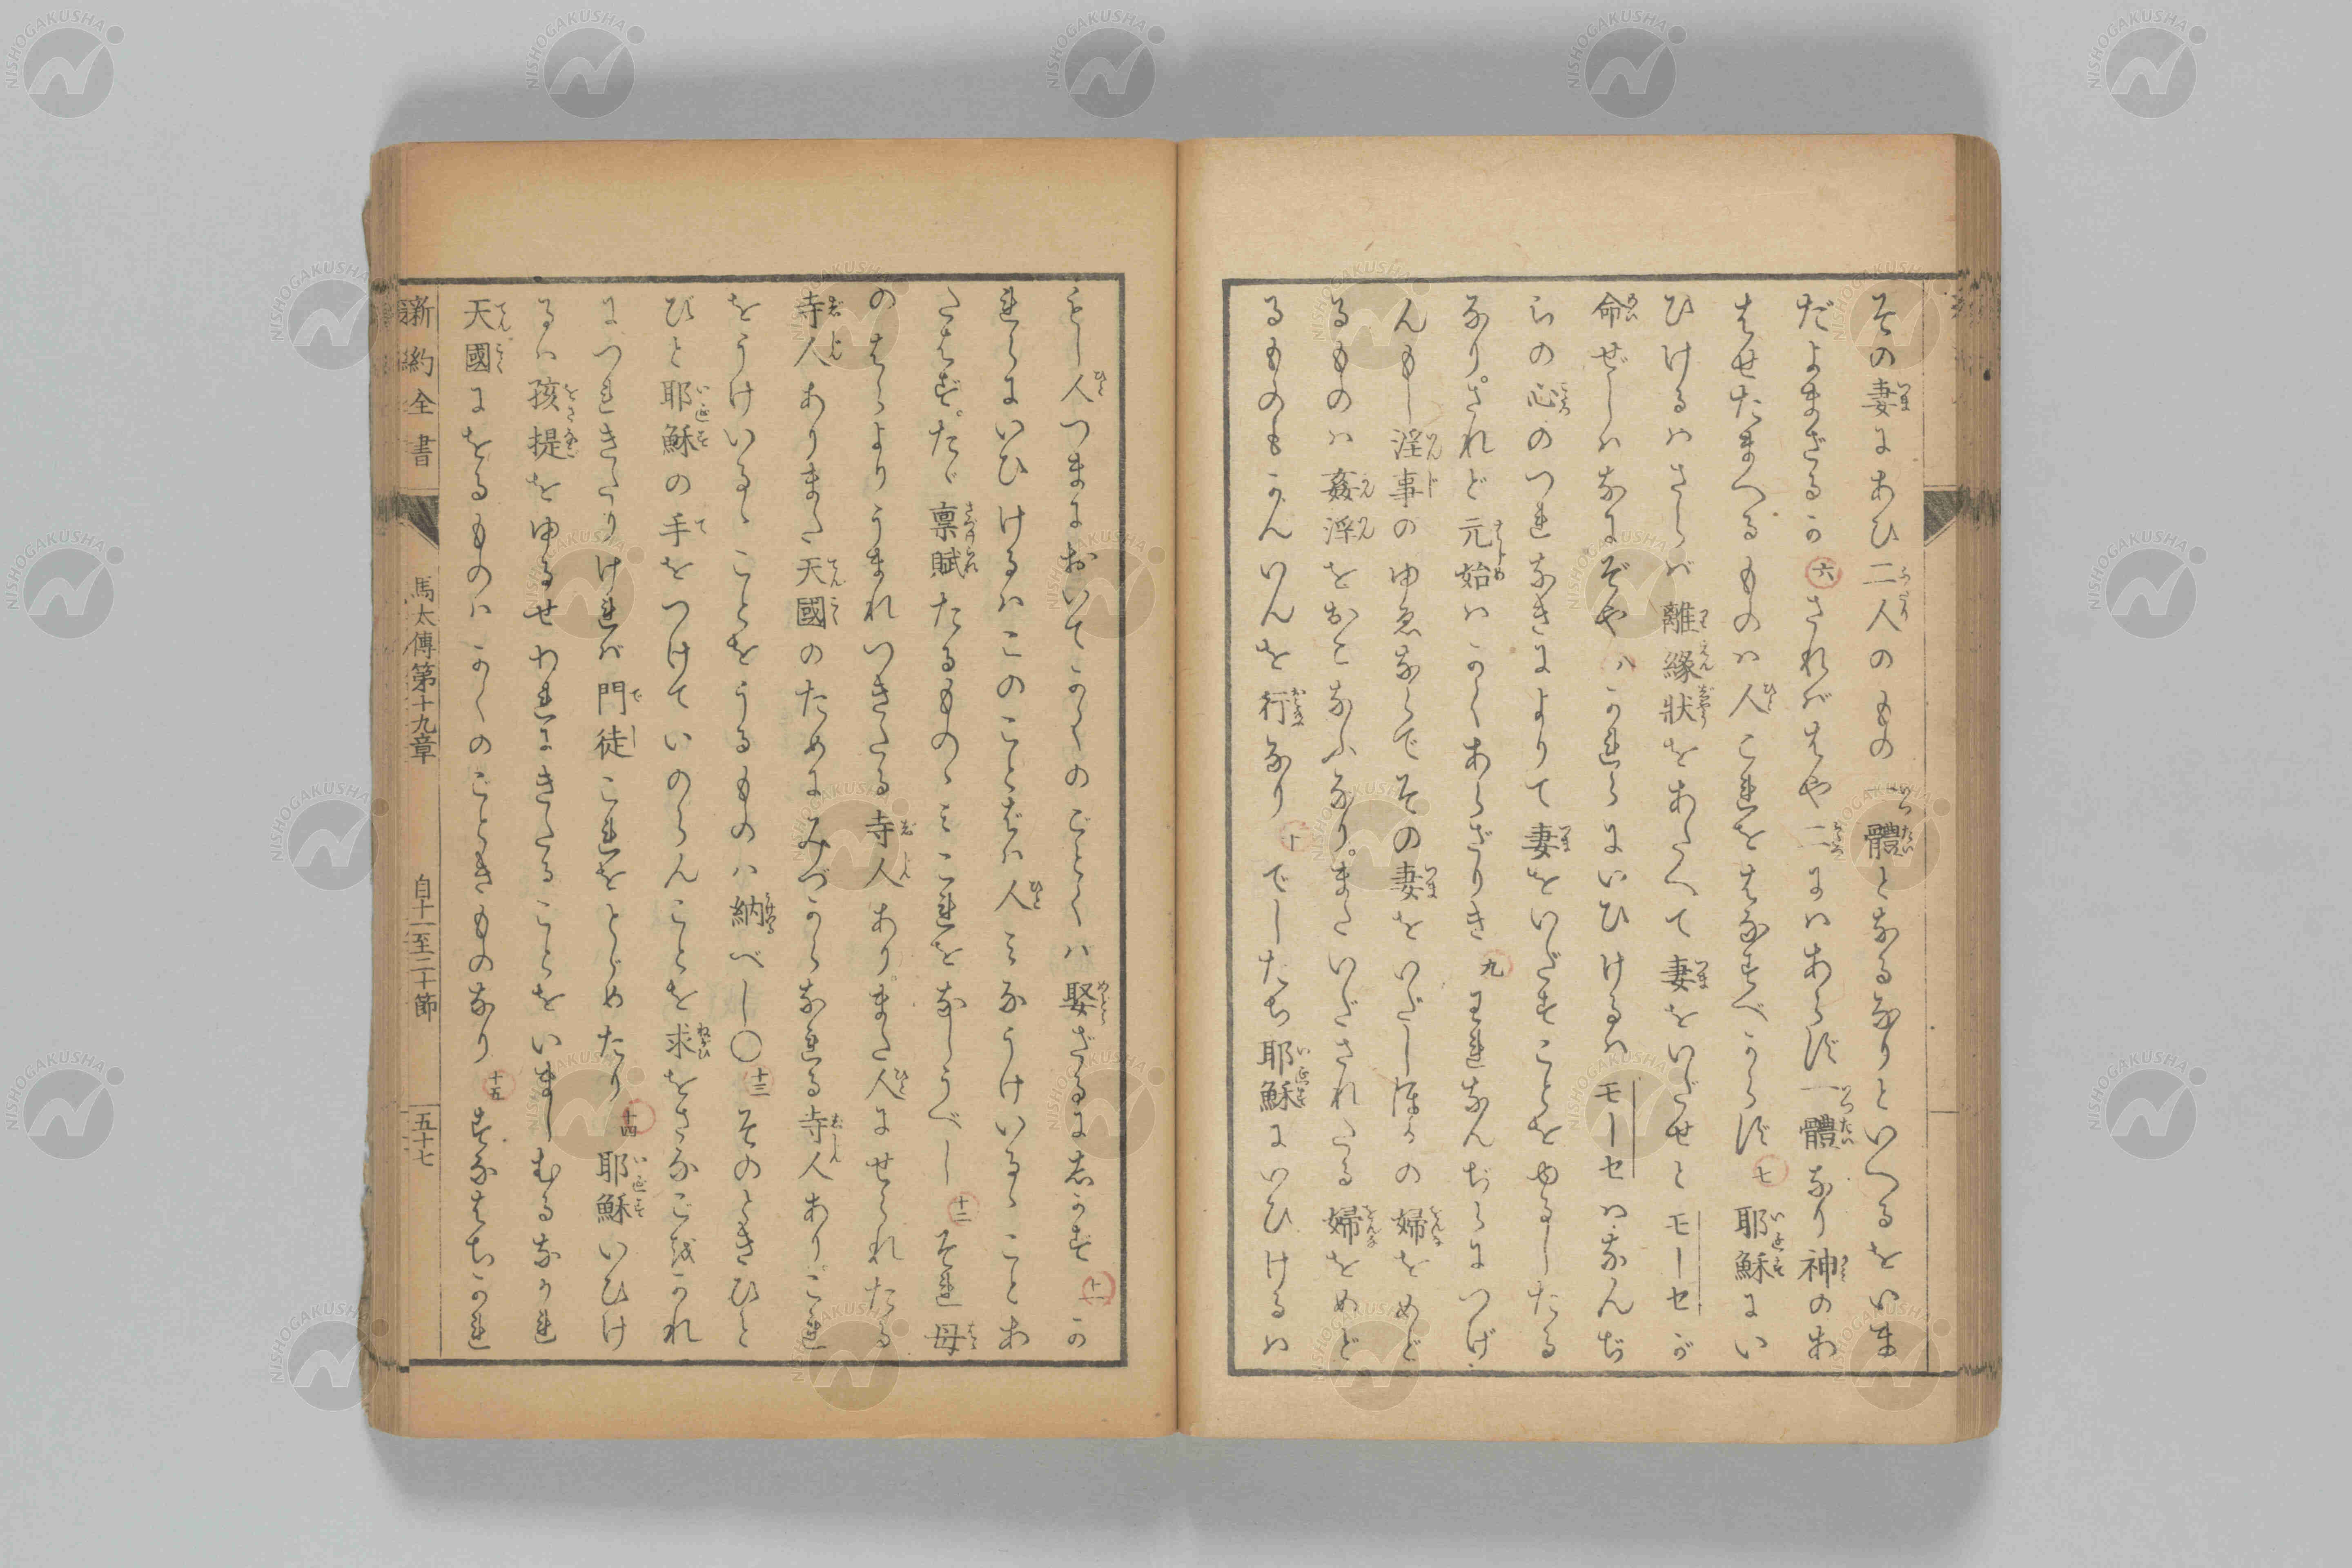 その妻にあひ二人のもの一體となるなりといへるをいま
だよまざるか六さればはや二にはあらず一體なり神のあ
はせたまへるものハ人これをはなすべからず七耶穌にい
ひけるハさらバ離縁狀をあたへて妻をいだせとモーセが
命ぜしハなにぞや八かれらにいひけるハモーセハなんぢ
らの心のつれなきによりて妻をいだすことをゆるしたる
なり。されど元始ハかくあらざりき九われなんぢらにつげ
んもし淫事のゆゑならでその妻をいだしほかの婦をめど
るものハ姦淫をおこなふなり。またいだされたる婦をめど
るものもかんいんを行なり十でしたち耶穌にいひけるハ
もし人つまにおいてかくのごとくハ娶ざるにしかず十一か
れらにいひけるハこのことばハ人ミなうけいるゝことあ
たはず。たゞ禀賦たるものゝミこれをなしうべし十二それ母
のはらよりうまれいきたる寺人あり。また人にせられたる
寺人ありまた天國のためにみづからなれる寺人あり。これ
をうけいるゝことをうるものハ納べし〇十三そのときひと
びと耶穌の手をつけていのらんことを求をさなごをかれ
につれきたりけれバ門徒これをとゞめたり十四耶穌いひけ
るハ孩提をゆるせわれにきたることをいましむるなかれ
天國にをるものハかくのごときものなり十五すなはちかれ
新約全書 馬太傳第十九章 自十一至二十節 五十七